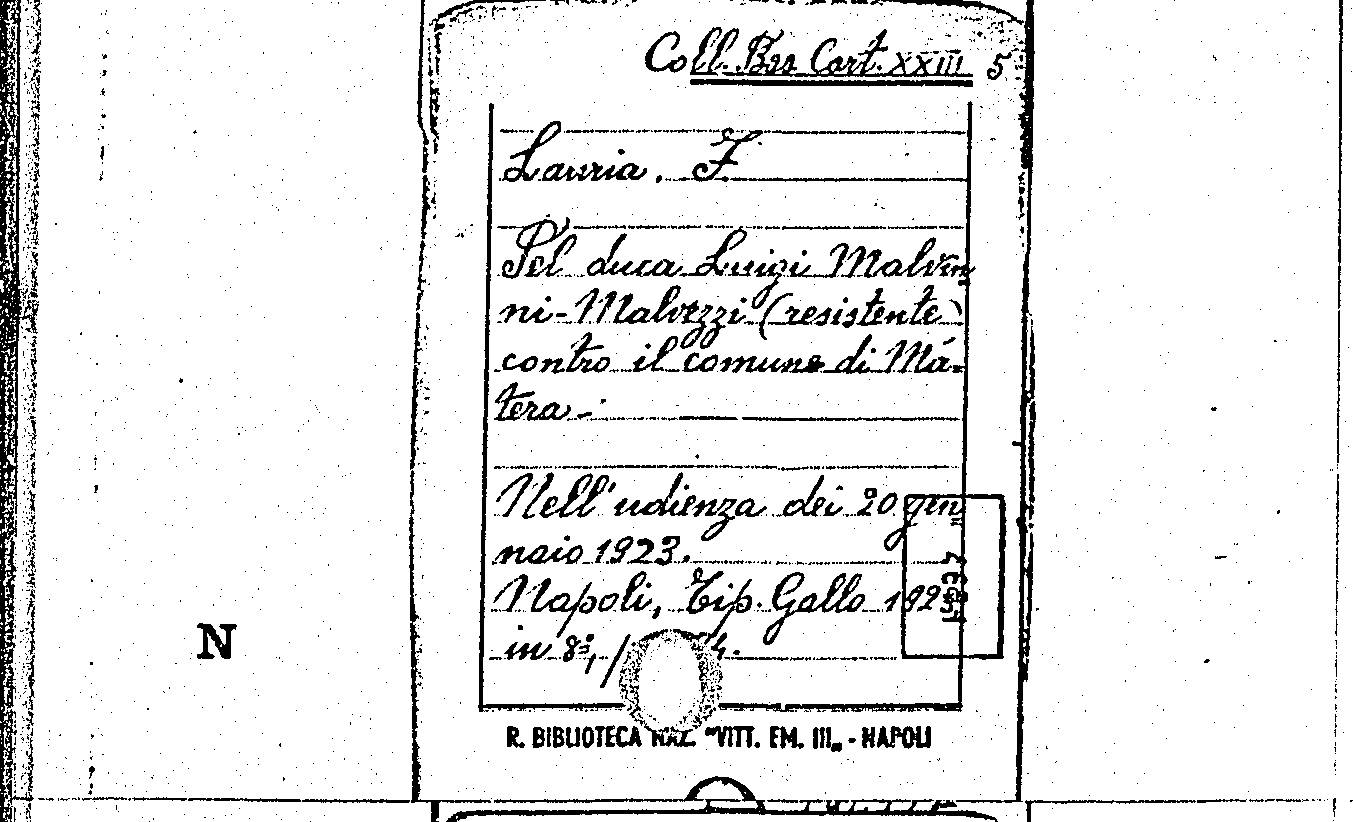 Coll. Bas Cart. XXIII 5
Lauria, F.
Pel duca Luigi Malvin
ni-Malvezzi (resistente)
contro il comune di Má-
tera -
Nell'udienza dei 20 gen
naio 1923.
Napoli, Tip. Gallo 1923
in 8º, 4.
N
R. BIBLIOTECA NAZ. "VITT. EM. III„ - NAPOLI